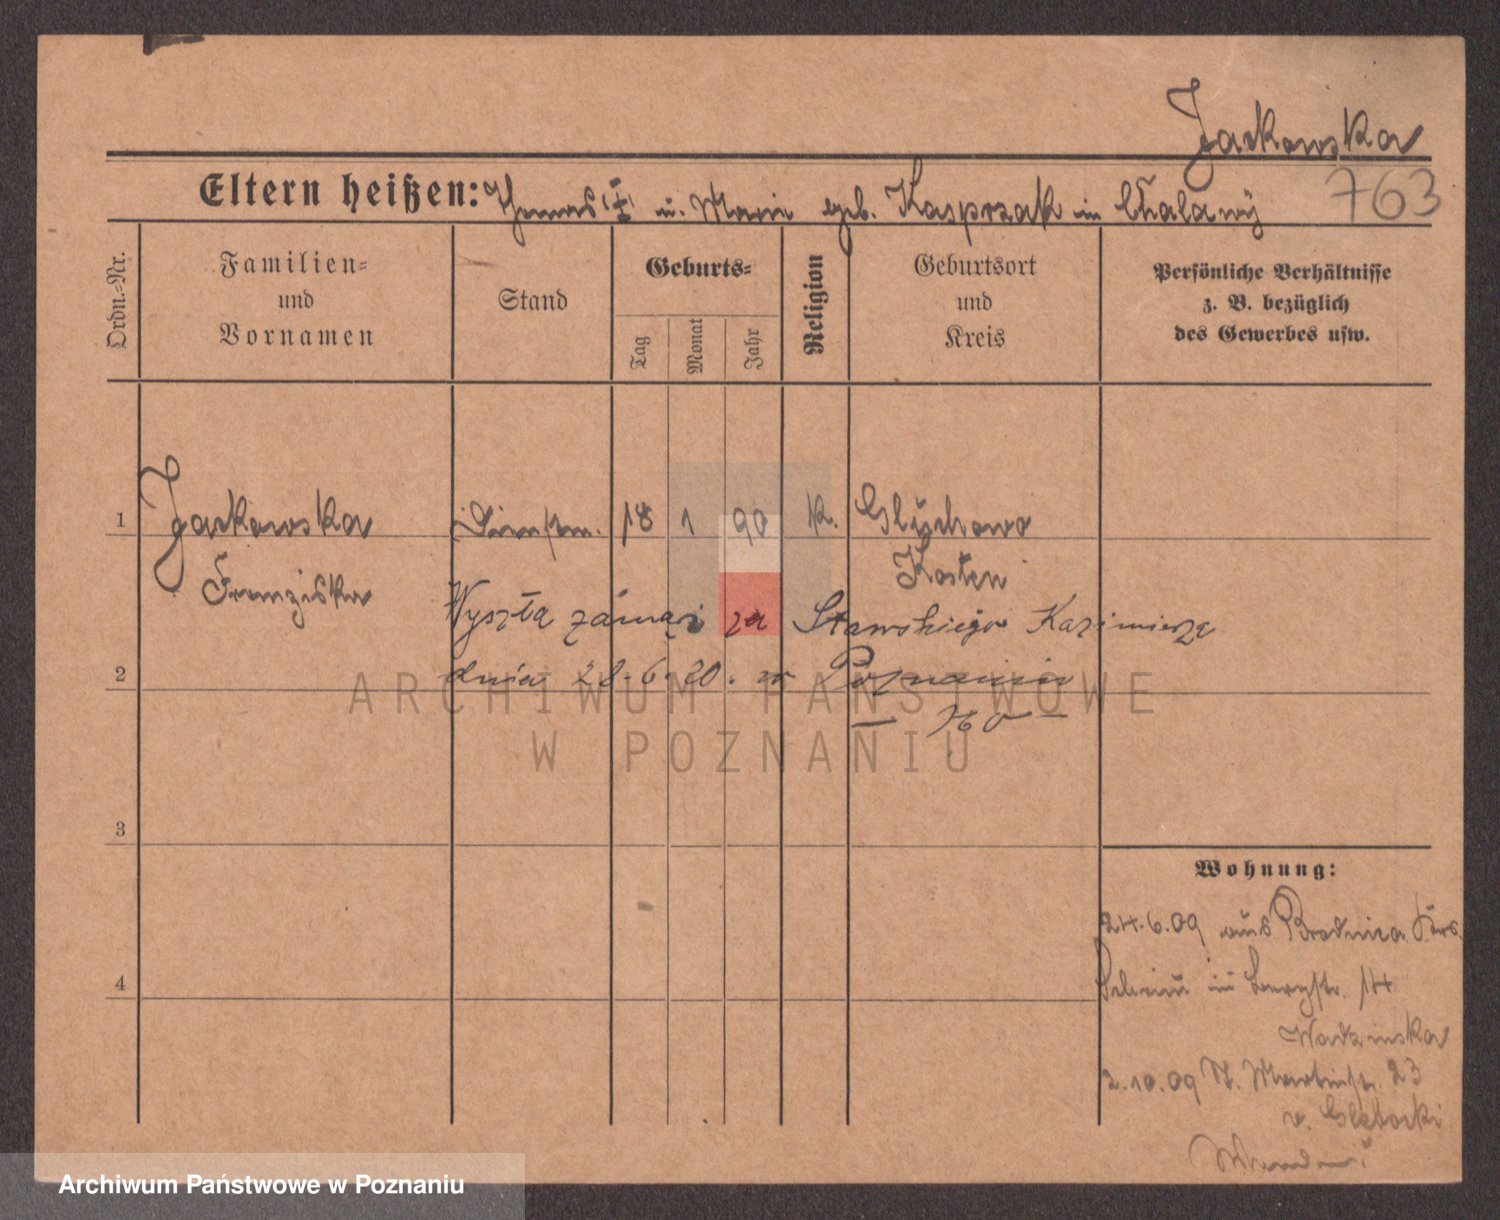 Jackowska
763
Eltern heißen: Thomas (†) u. Marie geb. Kasprzak in Chaławy
Ordn.-Nr.
Familien-
und
Vornamen
Stand
Geburts-
Tag
Monat
Jahr
Religion
Geburtsort
und
Kreis
Persönliche Verhältnisse
z. B. bezüglich
des Gewerbes usw.
1 Jackowska Dienstm. 18 1 90 K. Głuchowo
Franziska Kosten
Wyszła zámąż za Stawskiego Kazimierza
2 dnia 28.6.20. w Poznaniu
3
4
Wohnung:
24.6.09 aus Brodnica Krs.
Schrim in Bergstr. 14
2.10.09 St. Martinstr. 23
v.
ARCHIWUM PAŃSTWOWE
W POZNANIU
Archiwum Państwowe w Poznaniu